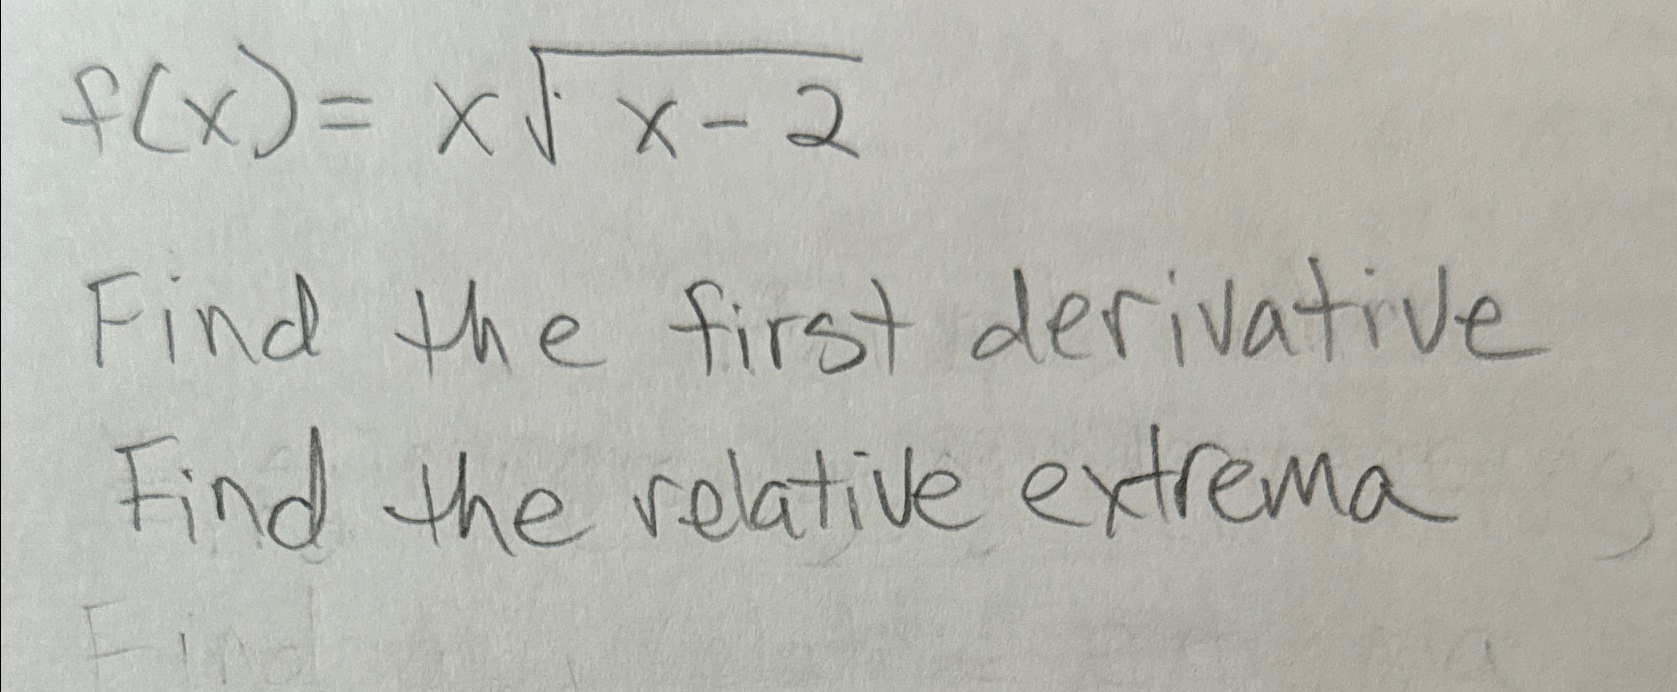 f(x) = x√x-2
Find the first derivative
Find the relative extrema
Find